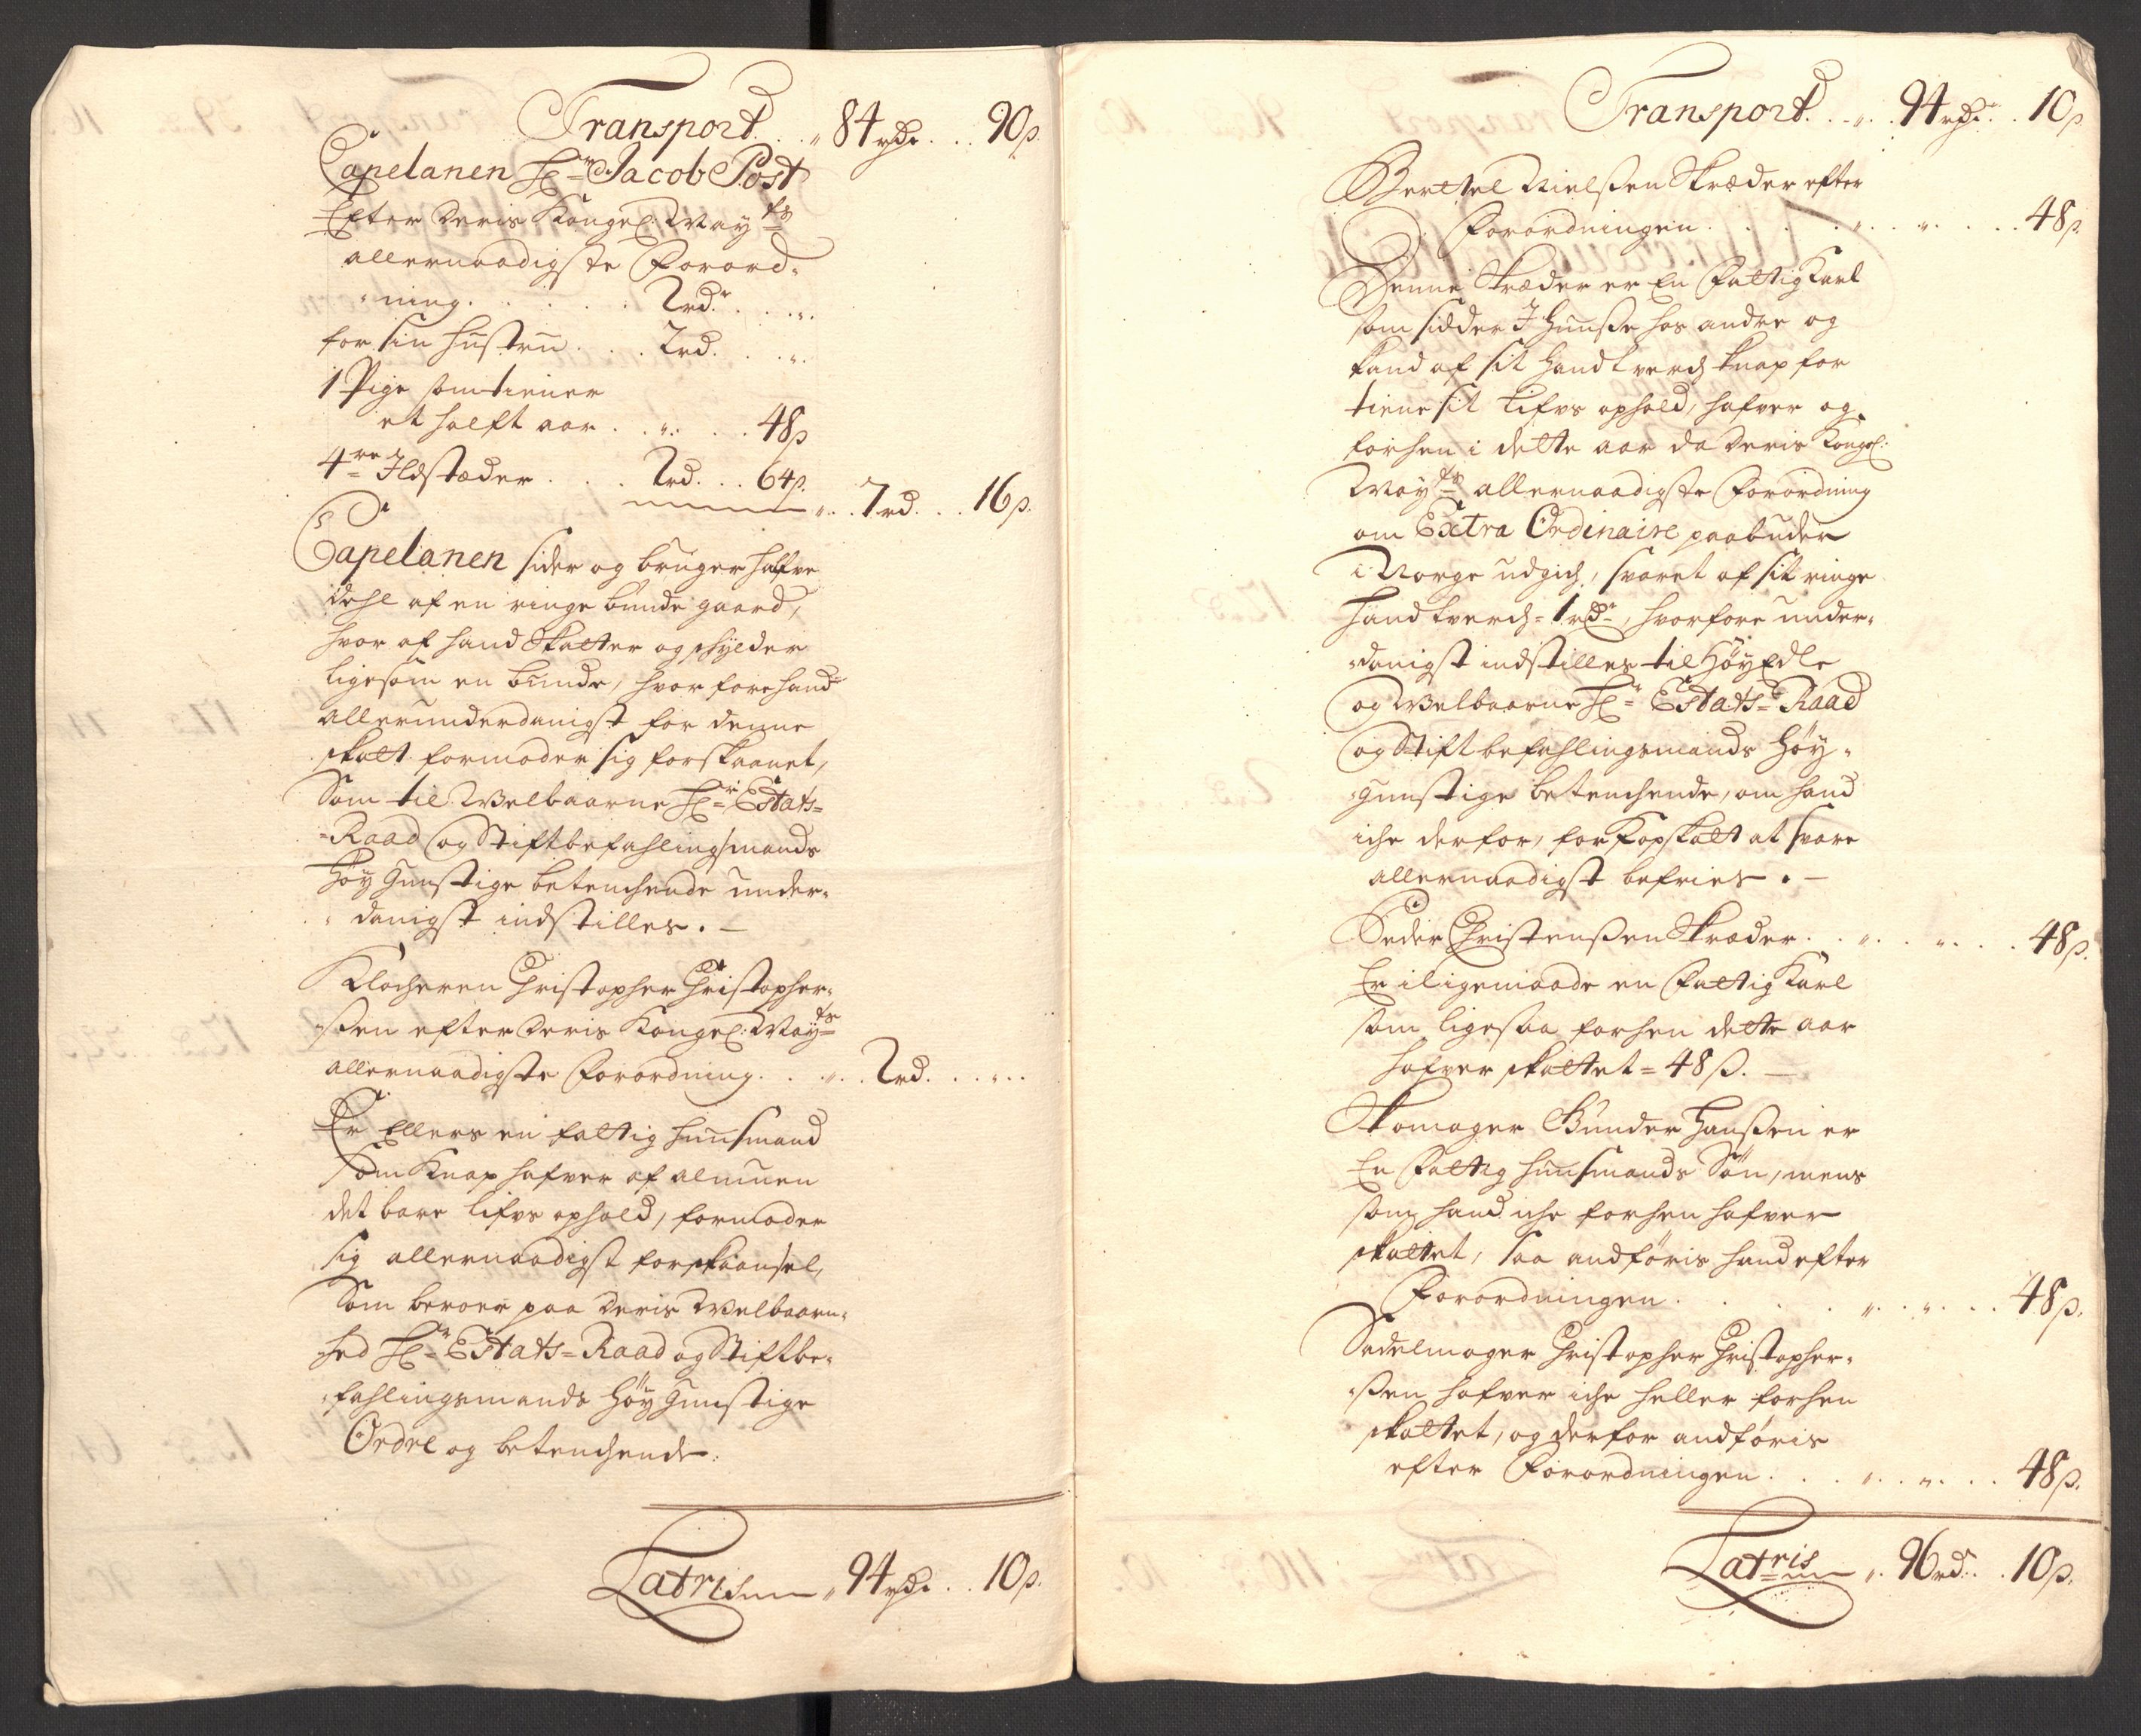 Transport. . . „ 84 rdr. . . 90 ß.
Capelanen Hr: Jacob Post
Efter Deris Kongel: May:ts
allernaadigste Forord-
-ning. . . . . . 2 rdr. . . „.
for sin hustru . . . 2 rd. . . „.
1 Pige som tiener
et halft aar . . „. . . 48 ß
4re Ildstæder . . . 2 rd. . . 64 ß. „. . 7 rd. . . 16 ß.
Capelanen sider og bruger halfve
dehl af en ringe bunde gaard,
hvor af hand Skatter og skylder
ligesom en bunde, hvor fore hand
allerunderdanigst for denne
skatt formoder sig forskaanet,
Som til Welbaarne Hr: Estats-
-Raad og Stiftbefahlingsmands
Høy Gunstige betenchende under-
-danigst indstilles. –
Klocheren Christopher Christopher-
-ßen efter Deris Kongel: May:ts
allernaadigste Forordning. . . „. . 2 rd. . . „. .
Er Ellers en fattig huusmand
som Knap hafver af almuen
det bare lifvs ophold, formoder
sig allernaadigst forskaansel,
Som beroer paa Deris Welbaarn-
-hed Hr: Estats-Raad og Stiftbe-
-fahlingsmands Høy Gunstige
Ordre og betenchende.
Latris „ 94 rdr. . . 10 ß.
Transport. . . „. . 94 rdr. . . 10 ß
Berthel Nielßen Skræder efter
Forordningen . . . . . „. . „. . . . 48 ß.
Denne Skræder er En Fattig Karl
som sidder J Huuße hos andre og
kand af sit Handtverch knap for
tiene sit Lifvs ophold, hafver og
forhen i dette aar da Deris Kongel:
May:ts allernaadigste Forordning
om Extra Ordinaire paabuden
i Norge udgich, svaret af sit ringe
Handtverch = 1 rdr, hvorfore under-
-danigst indstilles til Høy Edle
og Welbaarne Hr: Estats-Raad
og Stiftbefahlingsmands Høy-
-gunstige betenchende, om hand
iche derfor, for Kopskatt at svare
allernaadigst befries. –
Peder Christenßen Skræder. . „. . „. . . 48 ß.
Er iligemaade en Fattig Karl
som ligesaa forhen dette aar
hafver skattet = 48 ß. –
Skomager Gunder Hanßen er
En Fattig huusmands Søn, mens
som hand iche forhen hafver
skattet, saa andføris hand efter
Forordningen . . . . . „. . „. . . 48 ß.
Sadelmager Christopher Christopher-
-ßen hafver iche heller forhen
skattet, og derfor andføris
efter Forordningen . . . „. . „. . . 48 ß.
Latris „. 96 rdr. . 10 ß.